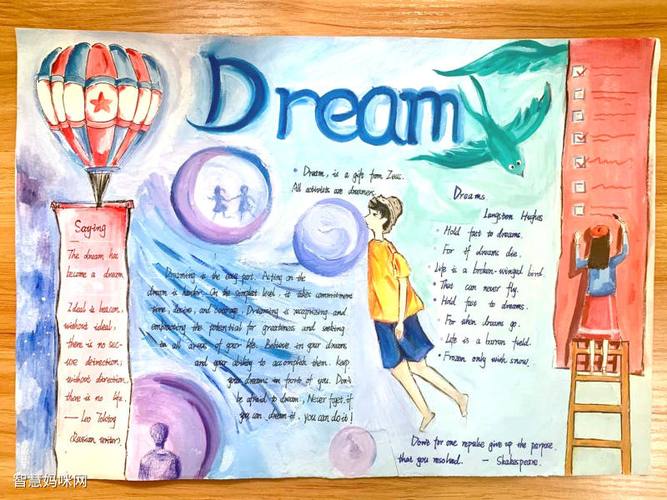 Dream
Saying
The dream has
become a dream
Ideal is beacon,
without ideal,
there is no sec-
ure detrection;
without direction,
there is no life.
— Leo Tolstoy
(Russian writer).
Dream, is a gift from Zeus.
All activists are dreamers.
Dreaming is the easy part. Acting on the
dream is harder. On the simplest level, it takes commitment
time, desire, and courage. Dreaming is recognizing and
emphasizing the potential for greatness and seeking
in all areas of your life. Believe in your dream
and your ability to accomplish them. Keep
your dreams in front of you. Don't
be afraid to dream, Never forget, if
you can dream it, you can do it!
Dreams
Langston Hughes
Hold fast to dreams.
For if dreams die.
Life is a broken-winged bird.
That can never fly.
Hold fast to dreams.
For when dreams go.
Life is a barren field.
Frozen only with snow.
Don't for one repulse give up the purpose
that you resolved. — Shakespeare.
智慧妈咪网